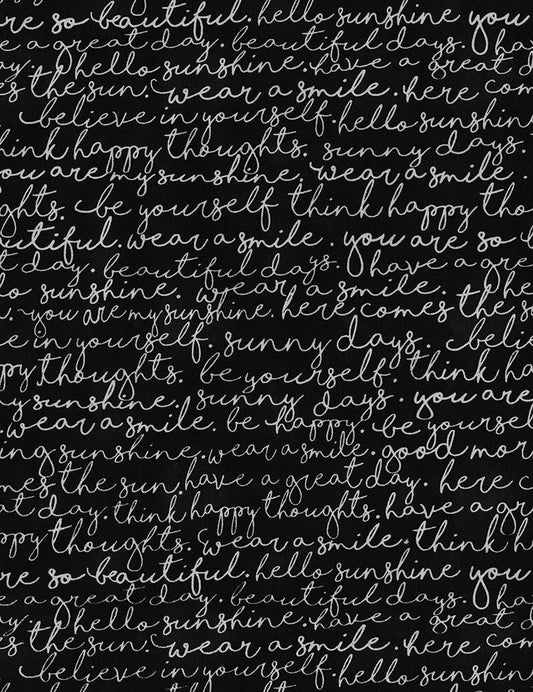 re so beautiful. hello sunshine you
e a great day. beautiful days. ha
ay. hello sunshine. have a great d
es the sun. wear a smile. here com
believe in yourself. hello sunshin
hink happy thoughts. sunny days.
ou are my sunshine. wear a smile.
ghts. be yourself think happy tho
utiful. wear a smile. you are so b
t day. beautiful days. have a gre
lo sunshine. wear a smile. he
. you are my sunshine. here comes the s
e in yourself. sunny days. belie
ppy thoughts. be yourself. think ha
y sunshine. sunny days. you are
. wear a smile. be happy. be yoursel
ing sunshine. wear a smile. good mor
mes the sun. have a great day. here c
at day. think happy thoughts. have a gr
ppy thoughts. wear a smile. think h
re so beautiful. hello sunshine you
e a great day. beautiful days. ha
ay. hello sunshine. have a great d
s the sun. wear a smile. here com
believe in yourself. hello sunshin